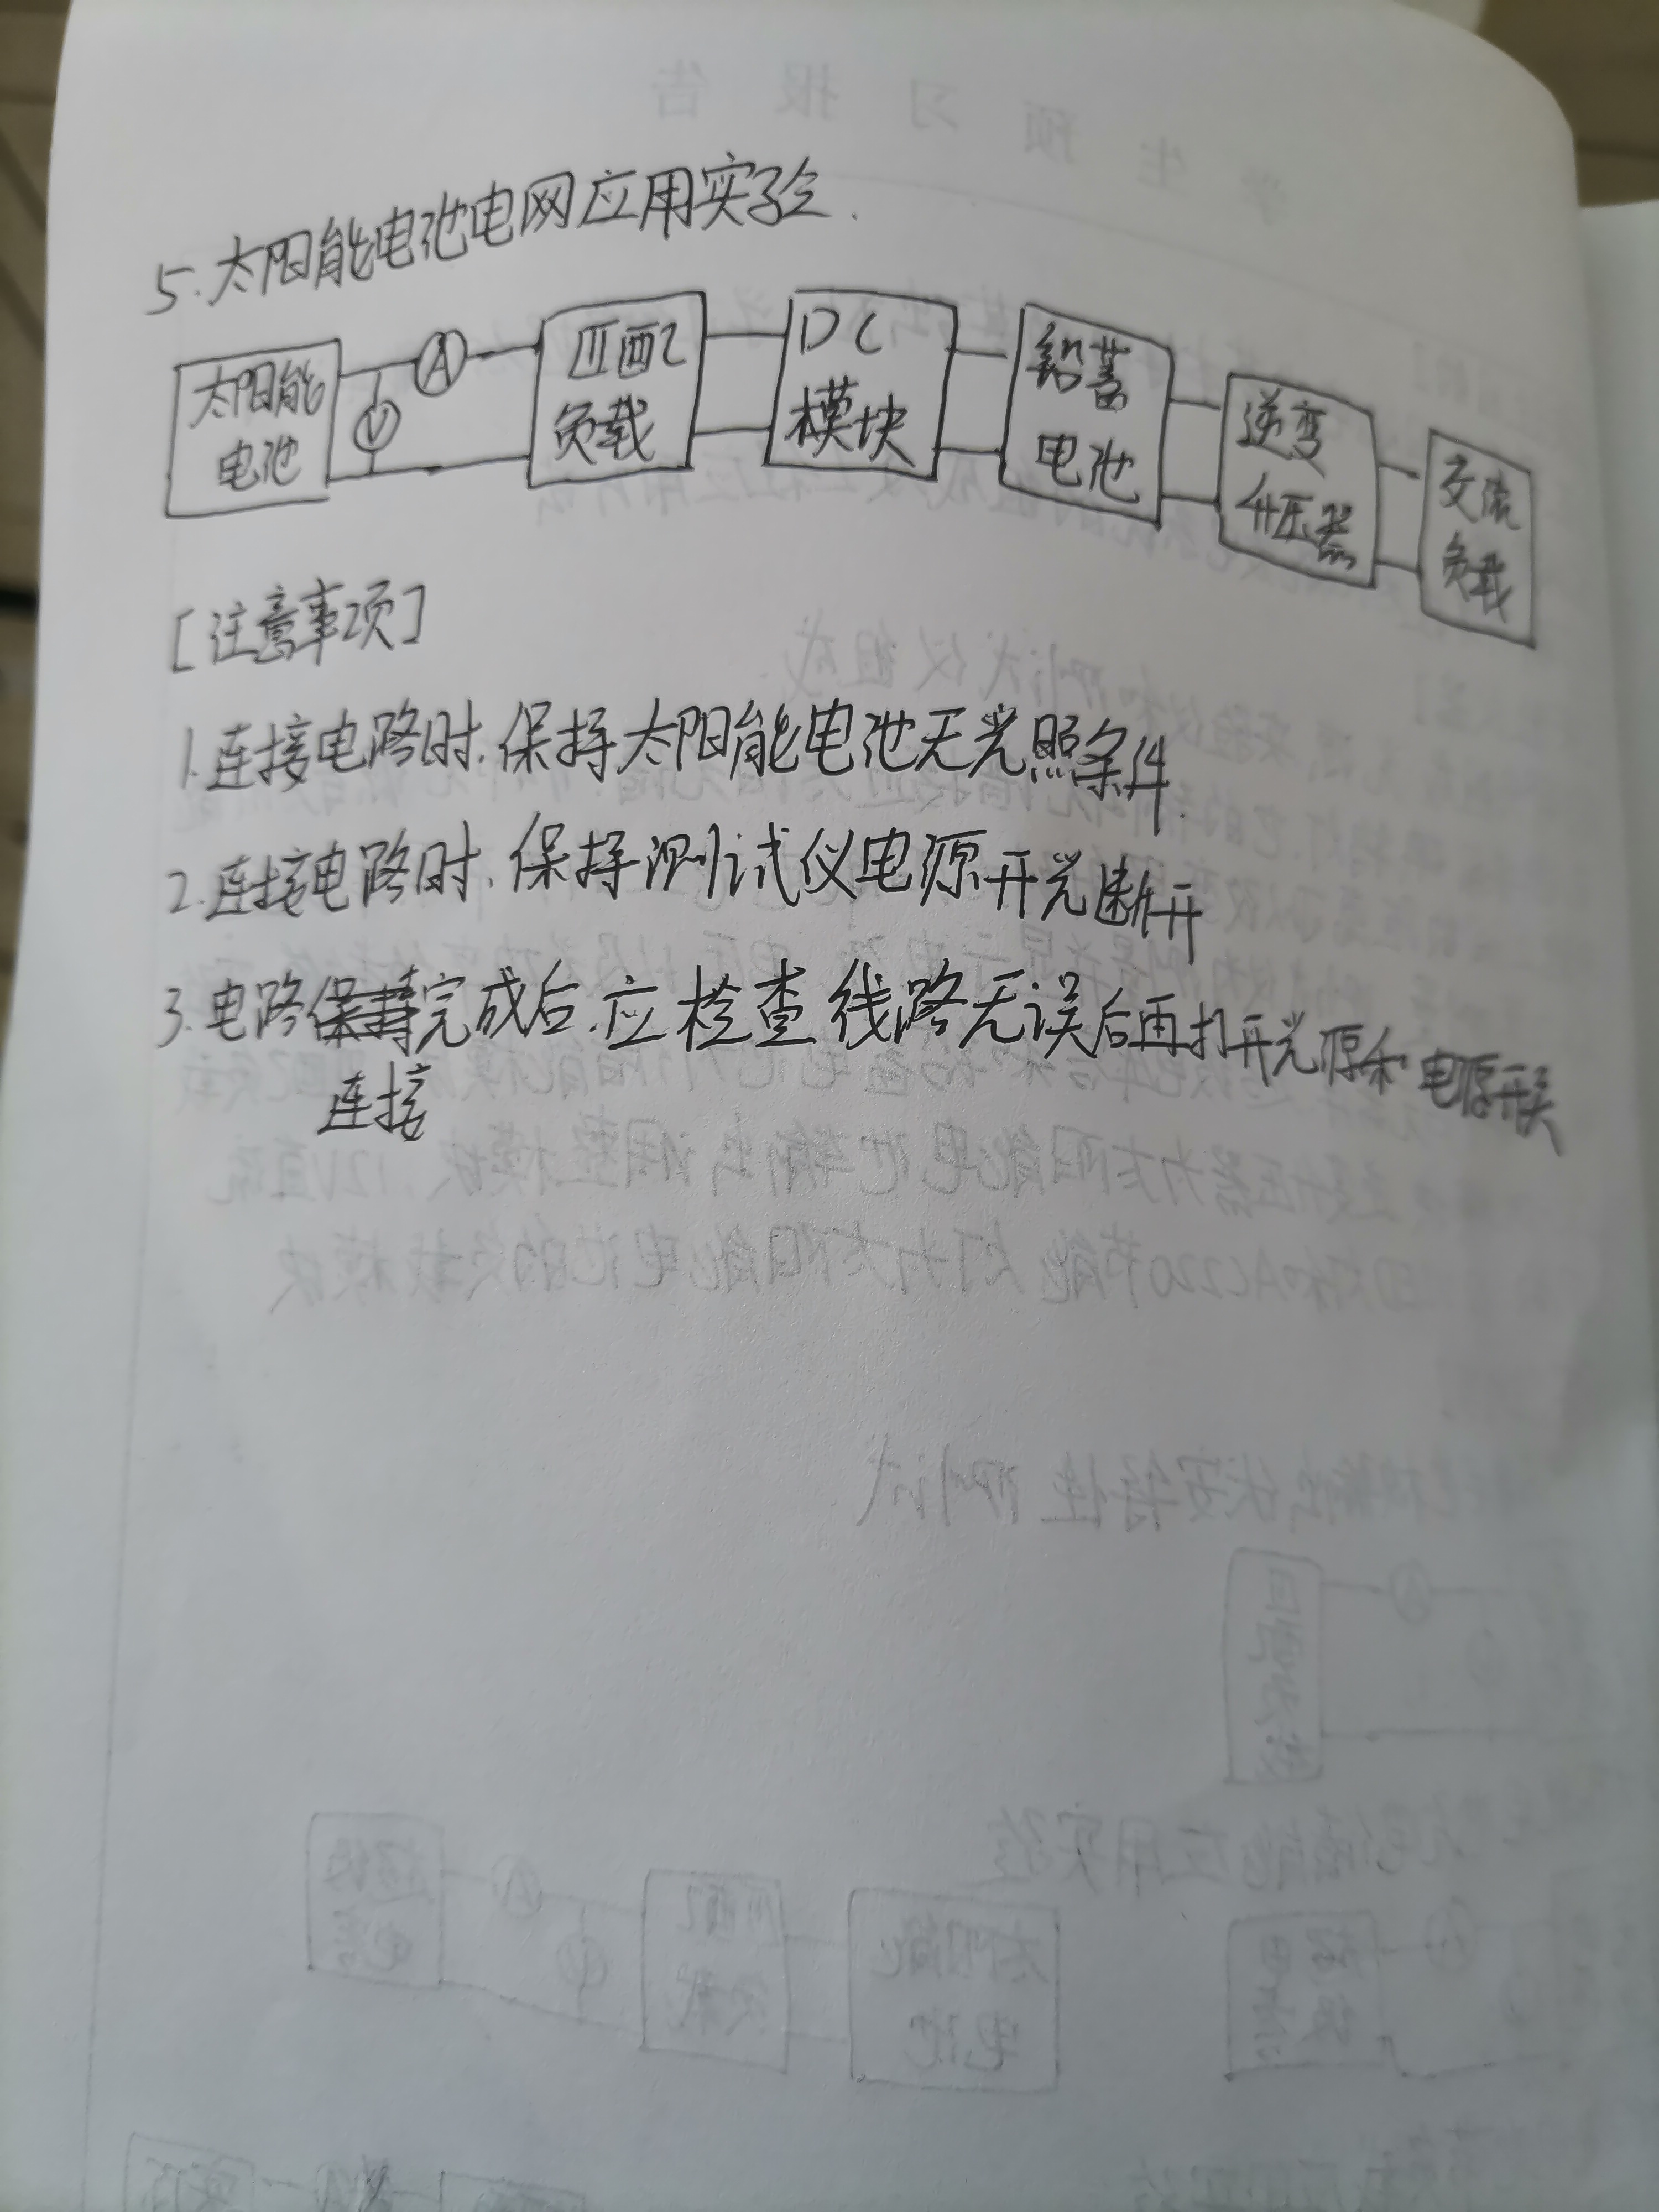 5.太阳能电池电网应用实验.
太阳能
电池
V
A
匹配
负载
DC
模块
铅蓄
电池
逆变
升压器
交流
负载
[注意事项]
1.连接电路时,保持太阳能电池无光照条件.
2.连接电路时,保持测试仪电源开光断开
3.电路连接完成后,应检查线路无误后再打开光源和电源开关